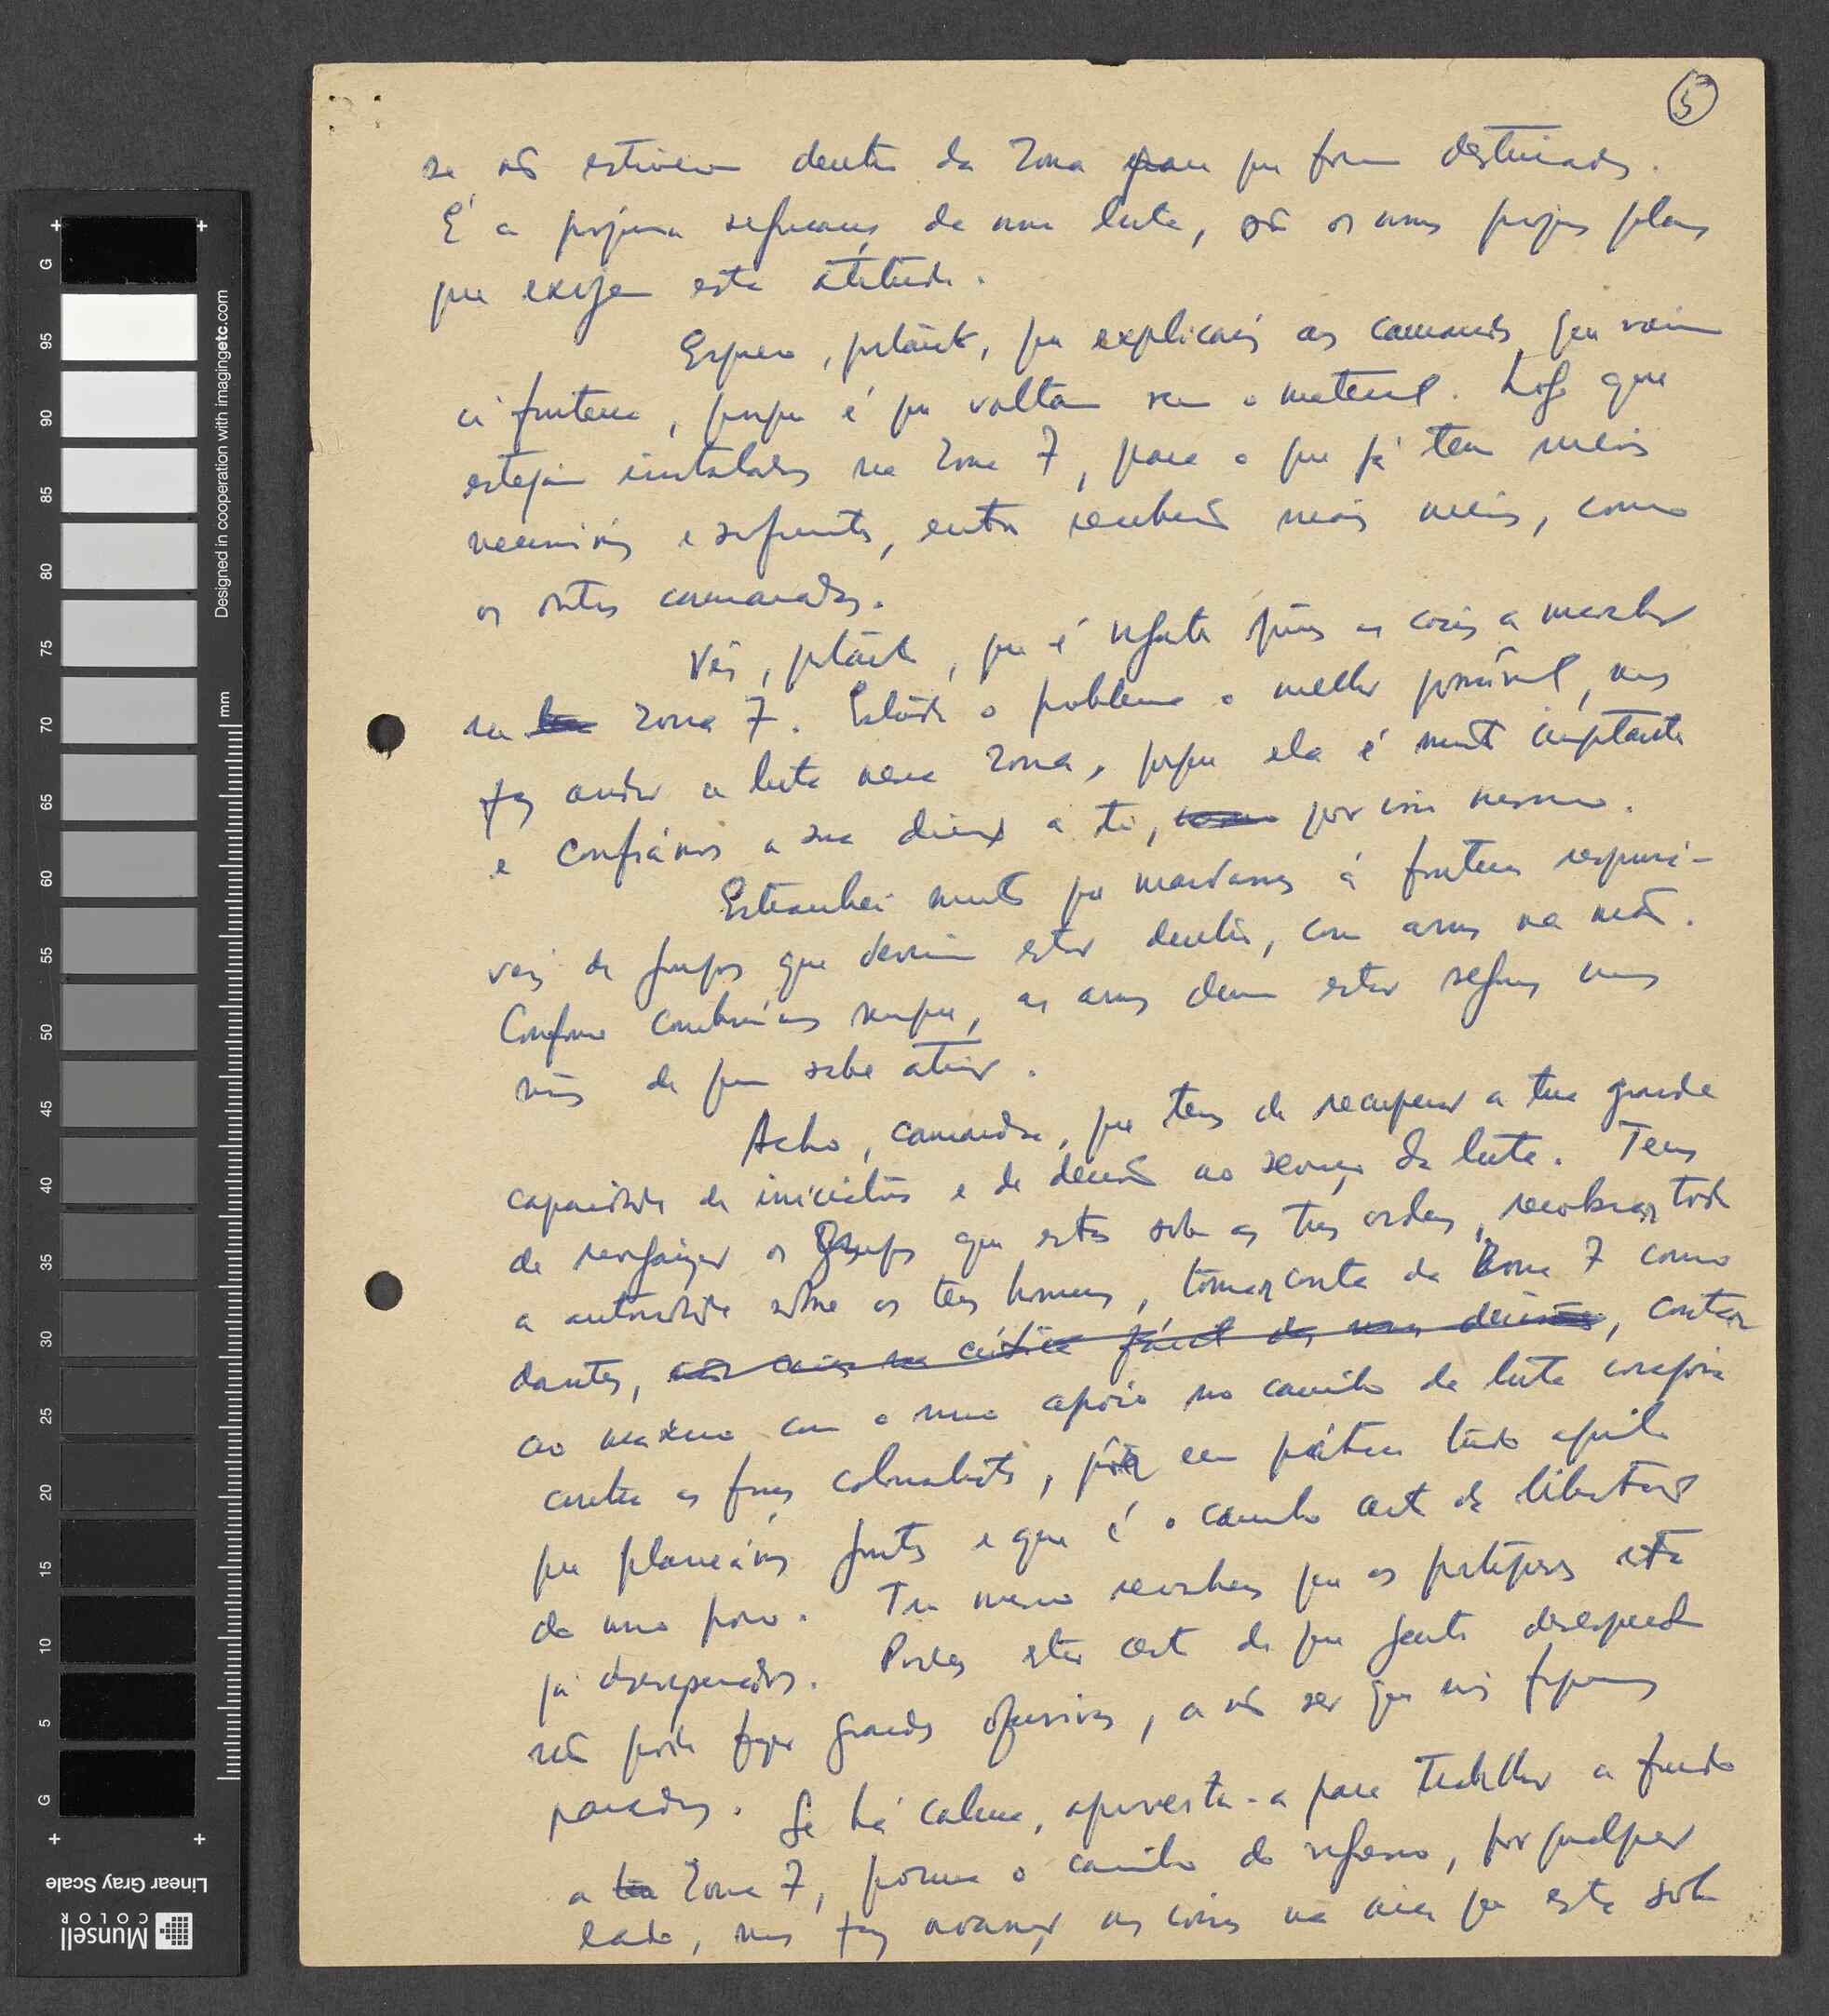 5
se não estiverem dentro da Zona para que foram destinados.
É a própria segurança da nossa luta, são os nossos próprios planos
que exigem esta atitude.
Espero, portanto, que explicarás aos camaradas que vieram
à fronteira, porque é que voltam sem o material. Logo que
estejam instalados na Zona 7, para o que já têm meios
necessários e suficientes, então receberão mais meios, como
os outros camaradas.
Vês, portanto, que é urgente pores as coisas a marchar
na tua Zona 7. Estuda o problema o melhor possível, mas
faz andar a luta nessa Zona, porque ela é muito importante
e confiámos a sua direcção a ti, como por isso mesmo.
Estranhei muito que mandasses à fronteira responsá-
veis de grupos que deviam estar dentro, com armas na mão.
Conforme combinámos sempre, as armas devem estar seguras nas
mãos de quem sabe atirar.
Acho, camarada, que tens de recuperar a tua grande
capacidade de iniciativa e de decisão ao serviço da luta. Tens
de reorganizar os Grupos que estão sob as tuas ordens, recobrar toda
a autoridade sobre os teus homens, tomar conta da Zona 7 como
dantes, não cair na crítica fácil das nossas decisões, contar
ao máximo com o nosso apoio no caminho da luta corajosa
contra as forças colonialistas, pôr em prática tudo aquilo
que planeámos juntos e que é o caminho certo da libertação
do nosso povo. Tu mesmo reconheces que os portugueses estão
já desesperados. Podes estar certo de que gente desesperada
não pode fazer grandes ofensivas, a não ser que nós fiquemos
parados. Se há calma, aproveita-a para trabalhar a fundo
a tua Zona 7, procura o caminho do reforço, por qualquer
lado, mas faz avançar as coisas na área que está sob
Designed in cooperation with imagingetc.com
mm
G
95
90
85
80
75
70
65
60
55
50
45
40
35
30
25
20
15
10
5
G
Linear Gray Scale
Munsell
COLOR